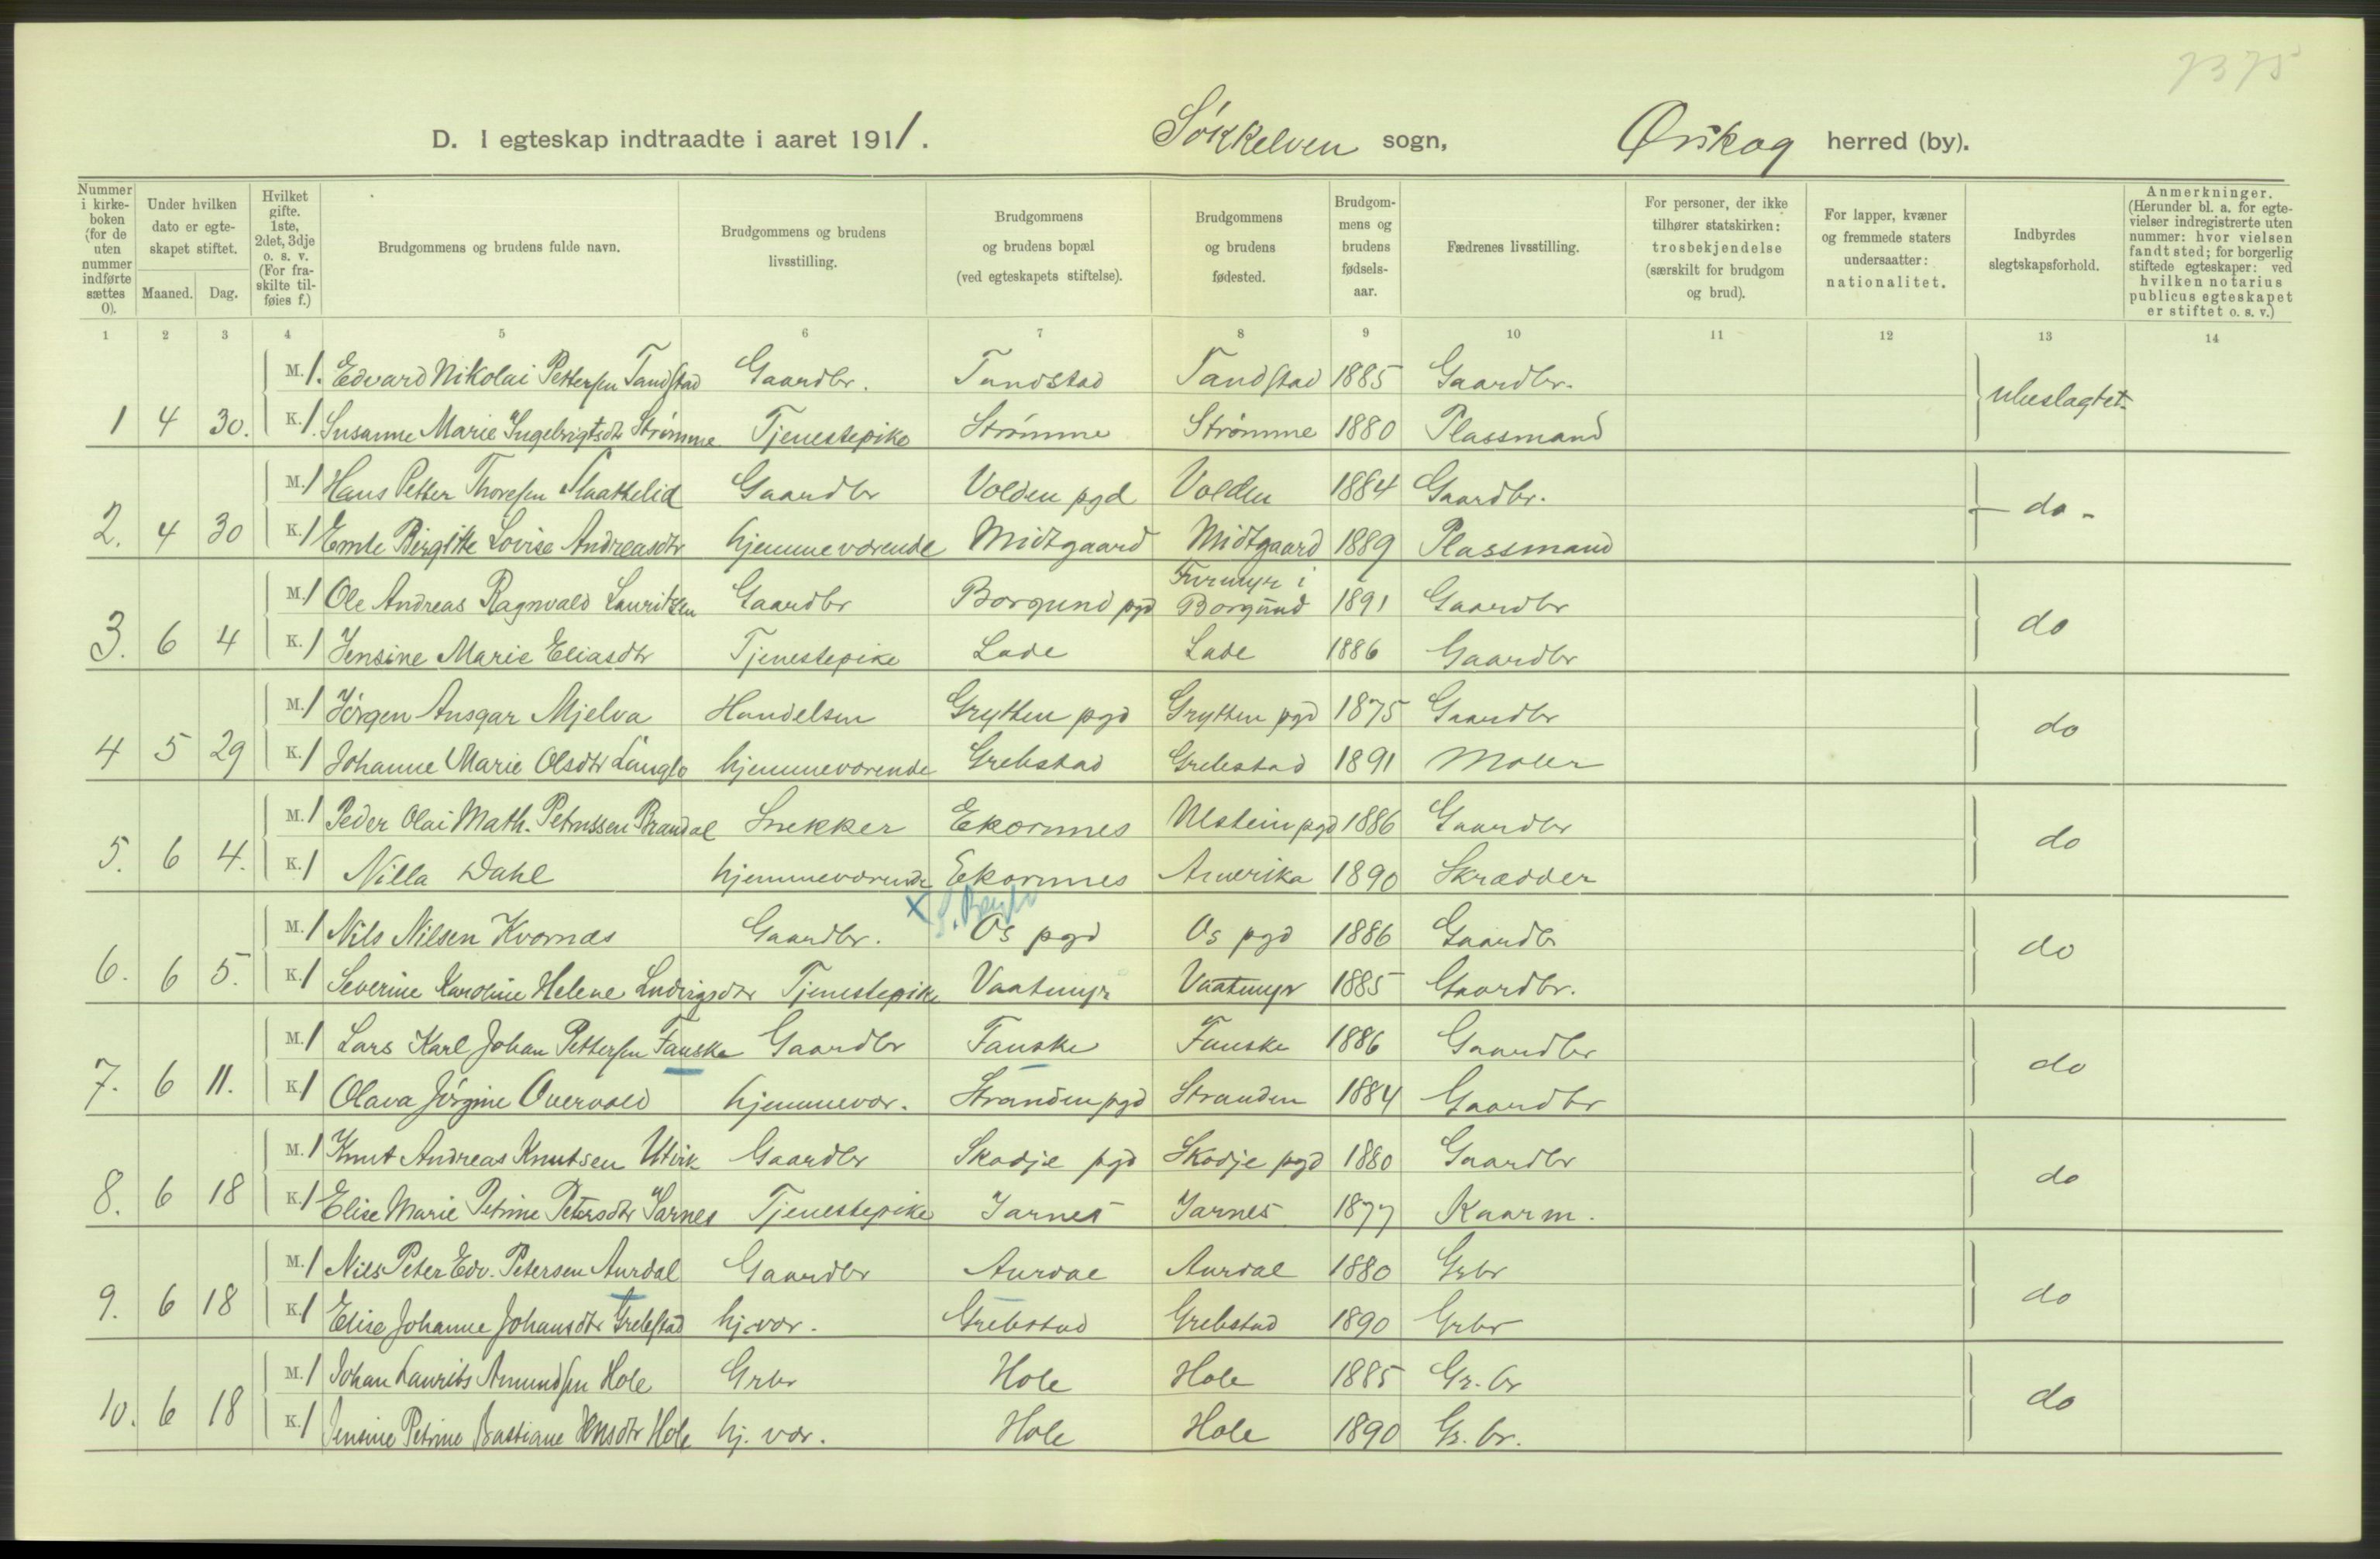 7375
D. I egteskap indtraadte i aaret 1911. Søkkelven sogn, Ørskog herred (by).
Nummer i kirkeboken (for de uten nummer indførte sættes 0).
Under hvilken dato er egteskapet stiftet.
Maaned. Dag.
Hvilket gifte. 1ste, 2det, 3dje o. s. v. (For fraskilte tilføies f.)
Brudgommens og brudens fulde navn.
Brudgommens og brudens livsstilling.
Brudgommens og brudens bopæl (ved egteskapets stiftelse).
Brudgommens og brudens fødested.
Brudgommens og brudens fødselsaar.
Fædrenes livsstilling.
For personer, der ikke tilhører statskirken: trosbekjendelse (særskilt for brudgom og brud).
For lapper, kvæner og fremmede staters undersaatter: nationalitet.
Indbyrdes slegtskapsforhold.
Anmerkninger. (Herunder bl. a. for egtevielser indregistrerte uten nummer: hvor vielsen fandt sted; for borgerlig stiftede egteskaper: ved hvilken notarius publicus egteskapet er stiftet o. s. v.)
1 2 3 4 5 6 7 8 9 10 11 12 13 14
M. 1. Edvard Nikolai Pettersen Tandstad Gaardbr. Tandstad Tandstad 1885 Gaardbr. ubeslagtet
1 4 30. K. 1. Susanne Marie Ingebrigtsdtr Strømme Tjenestepike Strømme Strømme 1880 Plassmand
M. 1 Hans Petter Thoresen Slaattelid Gaardbr Volden pgd Volden 1884 Gaardbr. do -
2. 4 30 K. 1 Emte Birgitte Lovise Andreasdtr hjemmeværende Midtgaard Midtgaard 1889 Plassmand
M. 1 Ole Andreas Ragnvald Lauritsen Gaardbr Borgund pgd Furmyr i Borgund 1891 Gaardbr do
3. 6 4 K. 1 Jensine Marie Eliasdtr Tjenestepike Lade Lade 1886 Gaardbr
M. 1 Jørgen Ansgar Mjelva Handelsm Grytten pgd Grytten pgd 1875 Gaardbr do
4 5 29 K. 1 Johanne Marie Olsdtr Langlo hjemmeværende Grebstad Grebstad 1891 Maler
M. 1 Peder Olai Math. Petrussen Brandal Snekker Ekornnes Ulstein pgd 1886 Gaardbr do
5. 6 4. K. 1 Nilla Dahl hjemmeværende Ekornnes Amerika 1890 Skrædder
M. 1 Nils Nilsen Kvornæs Gaardbr. X S. Bergh Os pgd Os pgd 1886 Gaardb do
6. 6 5. K. 1 Severine Karoline Helene Ludvigsdtr Tjenestepike Vaatmyr Vaatmyr 1885 Gaardbr.
M. 1 Lars Karl Johan Pettersen Fauske Gaardbr Fauske Fauske 1886 Gaardbr do
7. 6 11. K 1 Olava Jørgine Overvold hjemmevær. Stranden pgd Stranden 1884 Gaardbr
M. 1 Knut Andreas Knutsen Utvik Gaardbr Skodje pgd Skodje pgd 1880 Gaardbr do
8. 6 18 K 1 Elise Marie Petrine Petersdtr Jarnes Tjenestepike Jarnes Jarnes 1877 Kaarm.
M. 1 Nils Peter Edv. Petersen Aurdal Gaardbr Aurdal Aurdal 1880 Grbr do
9. 6 18 K. 1 Elise Johanne Johansdtr Grebstad hj.vær. Grebstad Grebstad 1890 Grbr
M. 1 Johan Laurits Amundsen Hole Grbr Hole Hole 1885 Gr.br do
10. 6 18 K. 1 Jensine Petrine Bastiane Jensdtr Hole hj. vær. Hole Hole 1890 Gr. br.